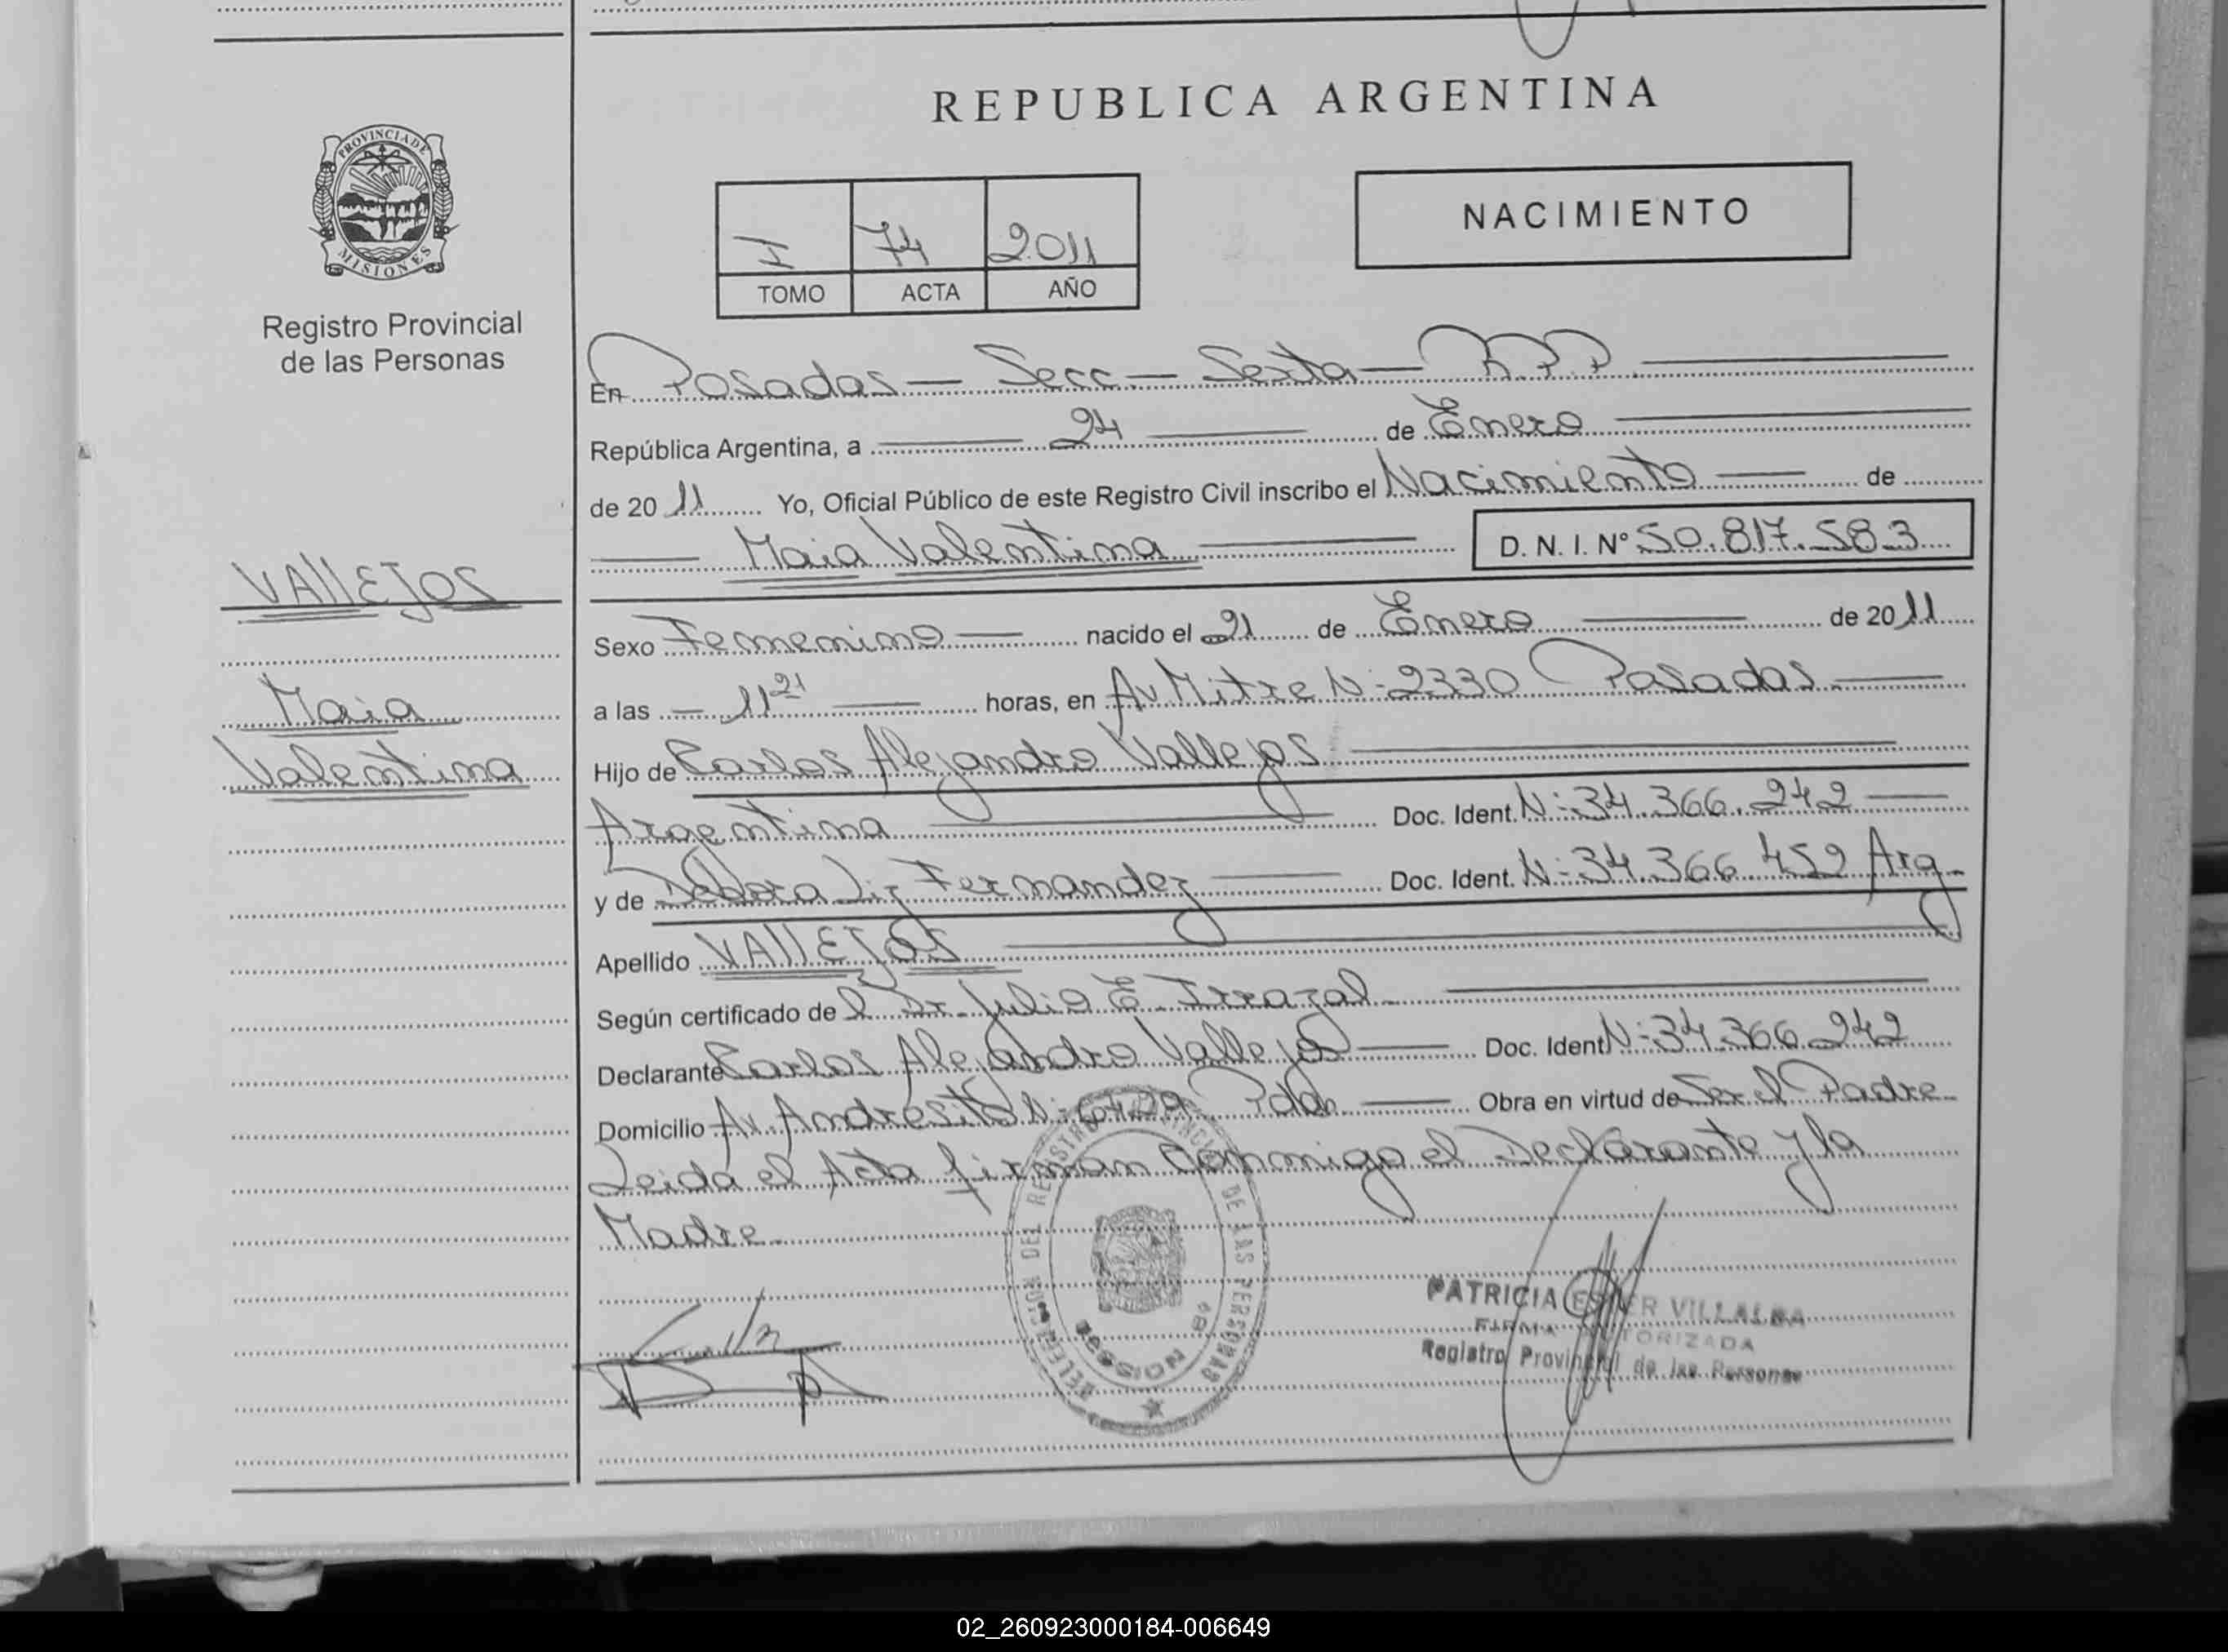 REPUBLICA ARGENTINA
PROVINCIA DE
MISIONES
Registro Provincial
de las Personas
I 74 2011
TOMO ACTA AÑO
NACIMIENTO
En Posadas - Secc - Sexta - R.P.P.
República Argentina, a 24 de Enero
de 2011 Yo, Oficial Público de este Registro Civil inscribo el Nacimiento de
Maia Valentina D. N. I. Nº 50.817.583
VAllEJOS
Maia
Valentina
Sexo Femenino nacido el 21 de Enero de 2011
a las 11 21 horas, en Av Mitre N: 2330 Posadas
Hijo de Carlos Alejandro Vallejos
Argentina Doc. Ident. N: 34.366.242
y de Debora Liz Fernandez Doc. Ident. N: 34.366 452 Arg
Apellido VAllEJOS
Según certificado de l Dr. Julio E. Irrazal
Declarante Carlos Alejandro Vallejos Doc. Ident N: 34.366.242
Domicilio Av. Andresito N: Pdas Obra en virtud de Ser el Padre
Leida el Acta firman Conmigo el Declarante y la
Madre.
DEL REGISTRO PROVINCIAL DE LAS PERSONAS
PATRICIA ESTER VILLALBA
FIRMA AUTORIZADA
Registro Provincial de las Personas
02_260923000184-006649